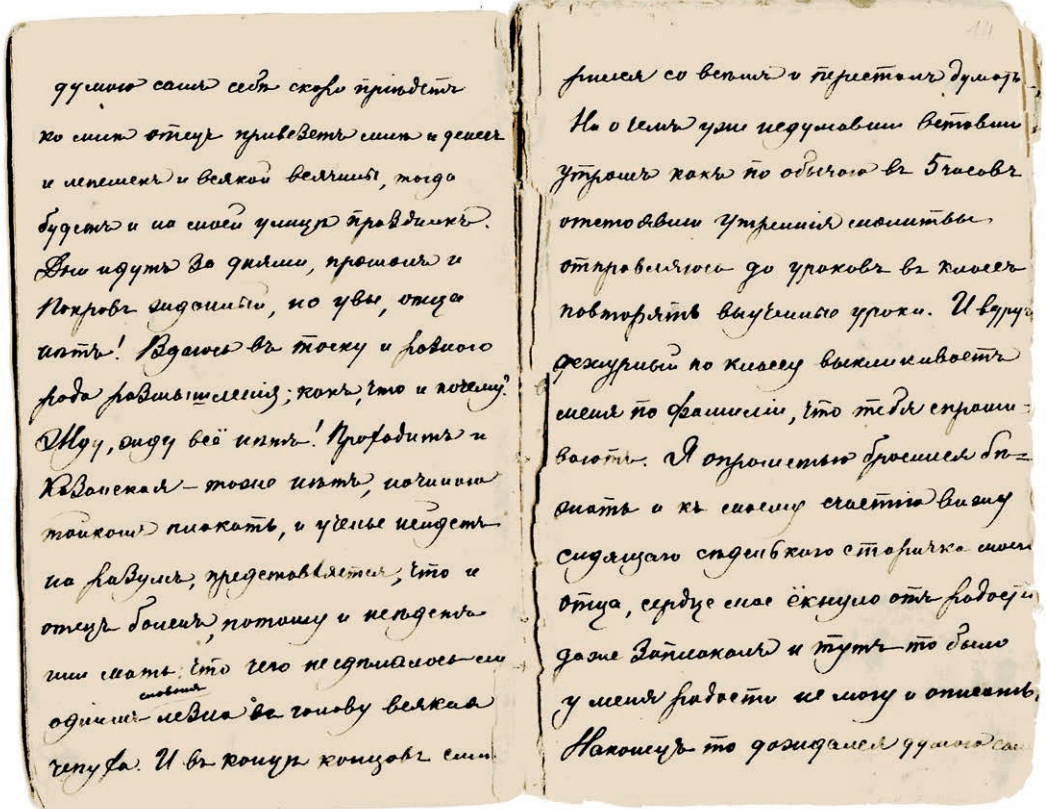 думаю самъ себѣ скоро пріѣдетъ
ко мнѣ отецъ привезетъ мнѣ и денегъ
и лепешекъ и всякой всячины, тогда
будетъ и на моей улицѣ праздникъ.
Дни идутъ за днями, прошолъ и
Покровъ жданный, но увы, отца
нѣтъ! Вдаюсь въ тоску и разного
рода размышленія; какъ, что и почему?
Жду, жду всё нѣтъ! Проходитъ и
Казанская – тоже нѣтъ, начинаю
тайкомъ плакать, и ученье нейдетъ
на разумъ, представляется, что и
отецъ боленъ, потому и неѣдетъ
или мать. что чего не сдѣлалось
однимъ словомъ лѣзла въ голову всякая
чепуха. И въ концѣ концовъ сми
рился со всемъ и пересталъ думать
Ни о чемъ уже недумавши вставши
утромъ какъ по обычаю въ 5 часовъ
отстоявши утреннія молитвы
отправляюсь до уроковъ въ классъ
повторять выученные уроки. И вдругъ
дежурный по классу выкликиваетъ
меня по фамиліи, что тебя спраши-
ваютъ. Я опрометью бросился бѣ=
жать и къ своему счастію вижу
сидящаго сѣденькаго старичка моего
отца, сердце мое ёкнуло отъ радости
даже заплакалъ и тутъ-то было
у меня радости не могу и описать.
Наконецъ то дождался думаю сам
14